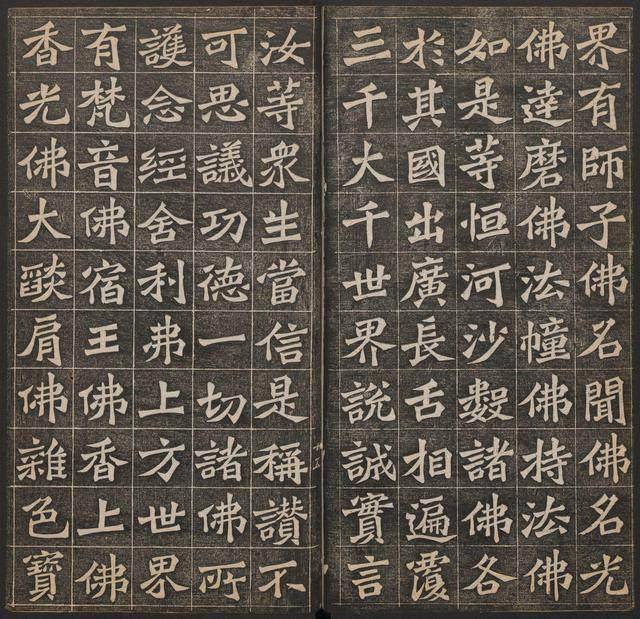 界有師子佛名聞佛名光
佛達磨佛法幢佛持法佛
如是等恒河沙數諸佛各
於其國出廣長舌相遍覆
三千大千世界說誠實言
汝等衆生當信是稱讃不
可思議功德一切諸佛所
護念經舍利弗上方世界
有梵音佛宿王佛香上佛
香光佛大燄肩佛雜色寶